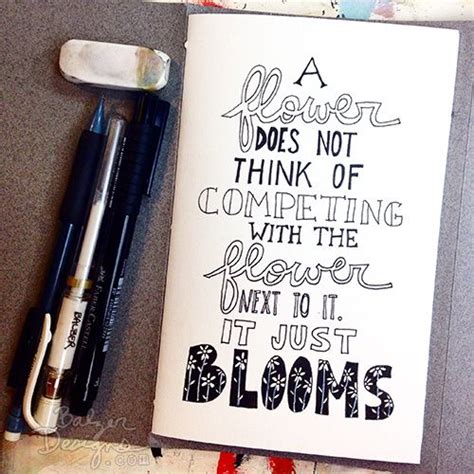 A
flower
DOES NOT
THINK OF
COMPETING
WITH THE
flower
NEXT TO IT.
IT JUST
BLOOMS
BALZER
Balzer
Designs
.com